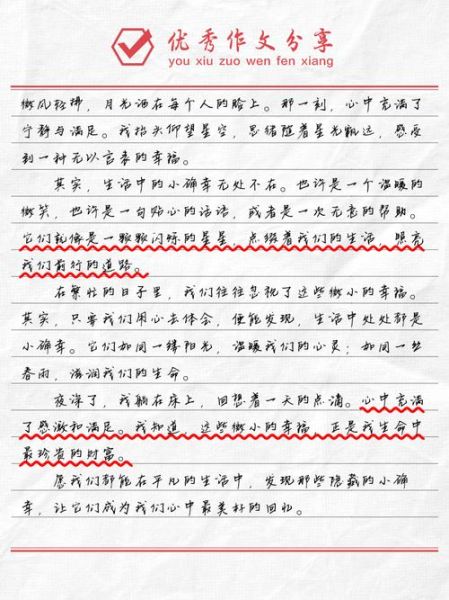 优秀作文分享
you xiu zuo wen fen xiang
微风轻拂，月光洒在每个人的脸上。那一刻，心中充满了
宁静与满足。我抬头仰望星空，思绪随着星光飘远，感受
到一种无以言表的幸福。
其实，生活中的小确幸无处不在。也许是一个温暖的
微笑，也许是一句贴心的话语，或者是一次无意的帮助。
它们就像是一颗颗闪烁的星星，点缀着我们的生活，照亮
我们前行的道路。
在繁忙的日子里，我们往往忽视了这些微小的幸福。
其实，只要我们用心去体会，便能发现，生活中处处都是
小确幸。它们如同一缕阳光，温暖我们的心灵；如同一丝
春雨，滋润我们的生命。
夜深了，我躺在床上，回想着一天的点滴。心中充满
了感激和满足。我知道，这些微小的幸福，正是我生命中
最珍贵的财富。
愿我们都能在平凡的生活中，发现那些隐藏的小确
幸，让它们成为我们心中最美好的回忆。